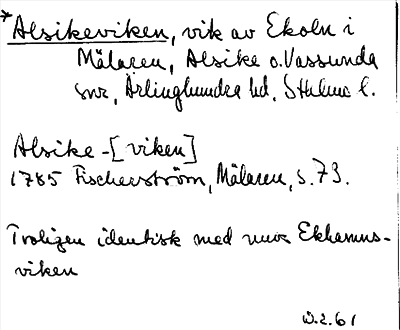 *Alsikeviken, vik av Ekoln i
Mälaren, Alsike o. Vassunda
snr, Ärlinghundra hd, Sthlms l.
Alsike-[viken]
1785 Fischerström, Mälaren, s. 73.
Troligen identisk med nuv. Ekhamns-
viken
W.Z. 61